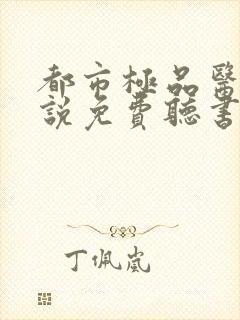 都市極品醫
說免費聽書
丁佩嵐